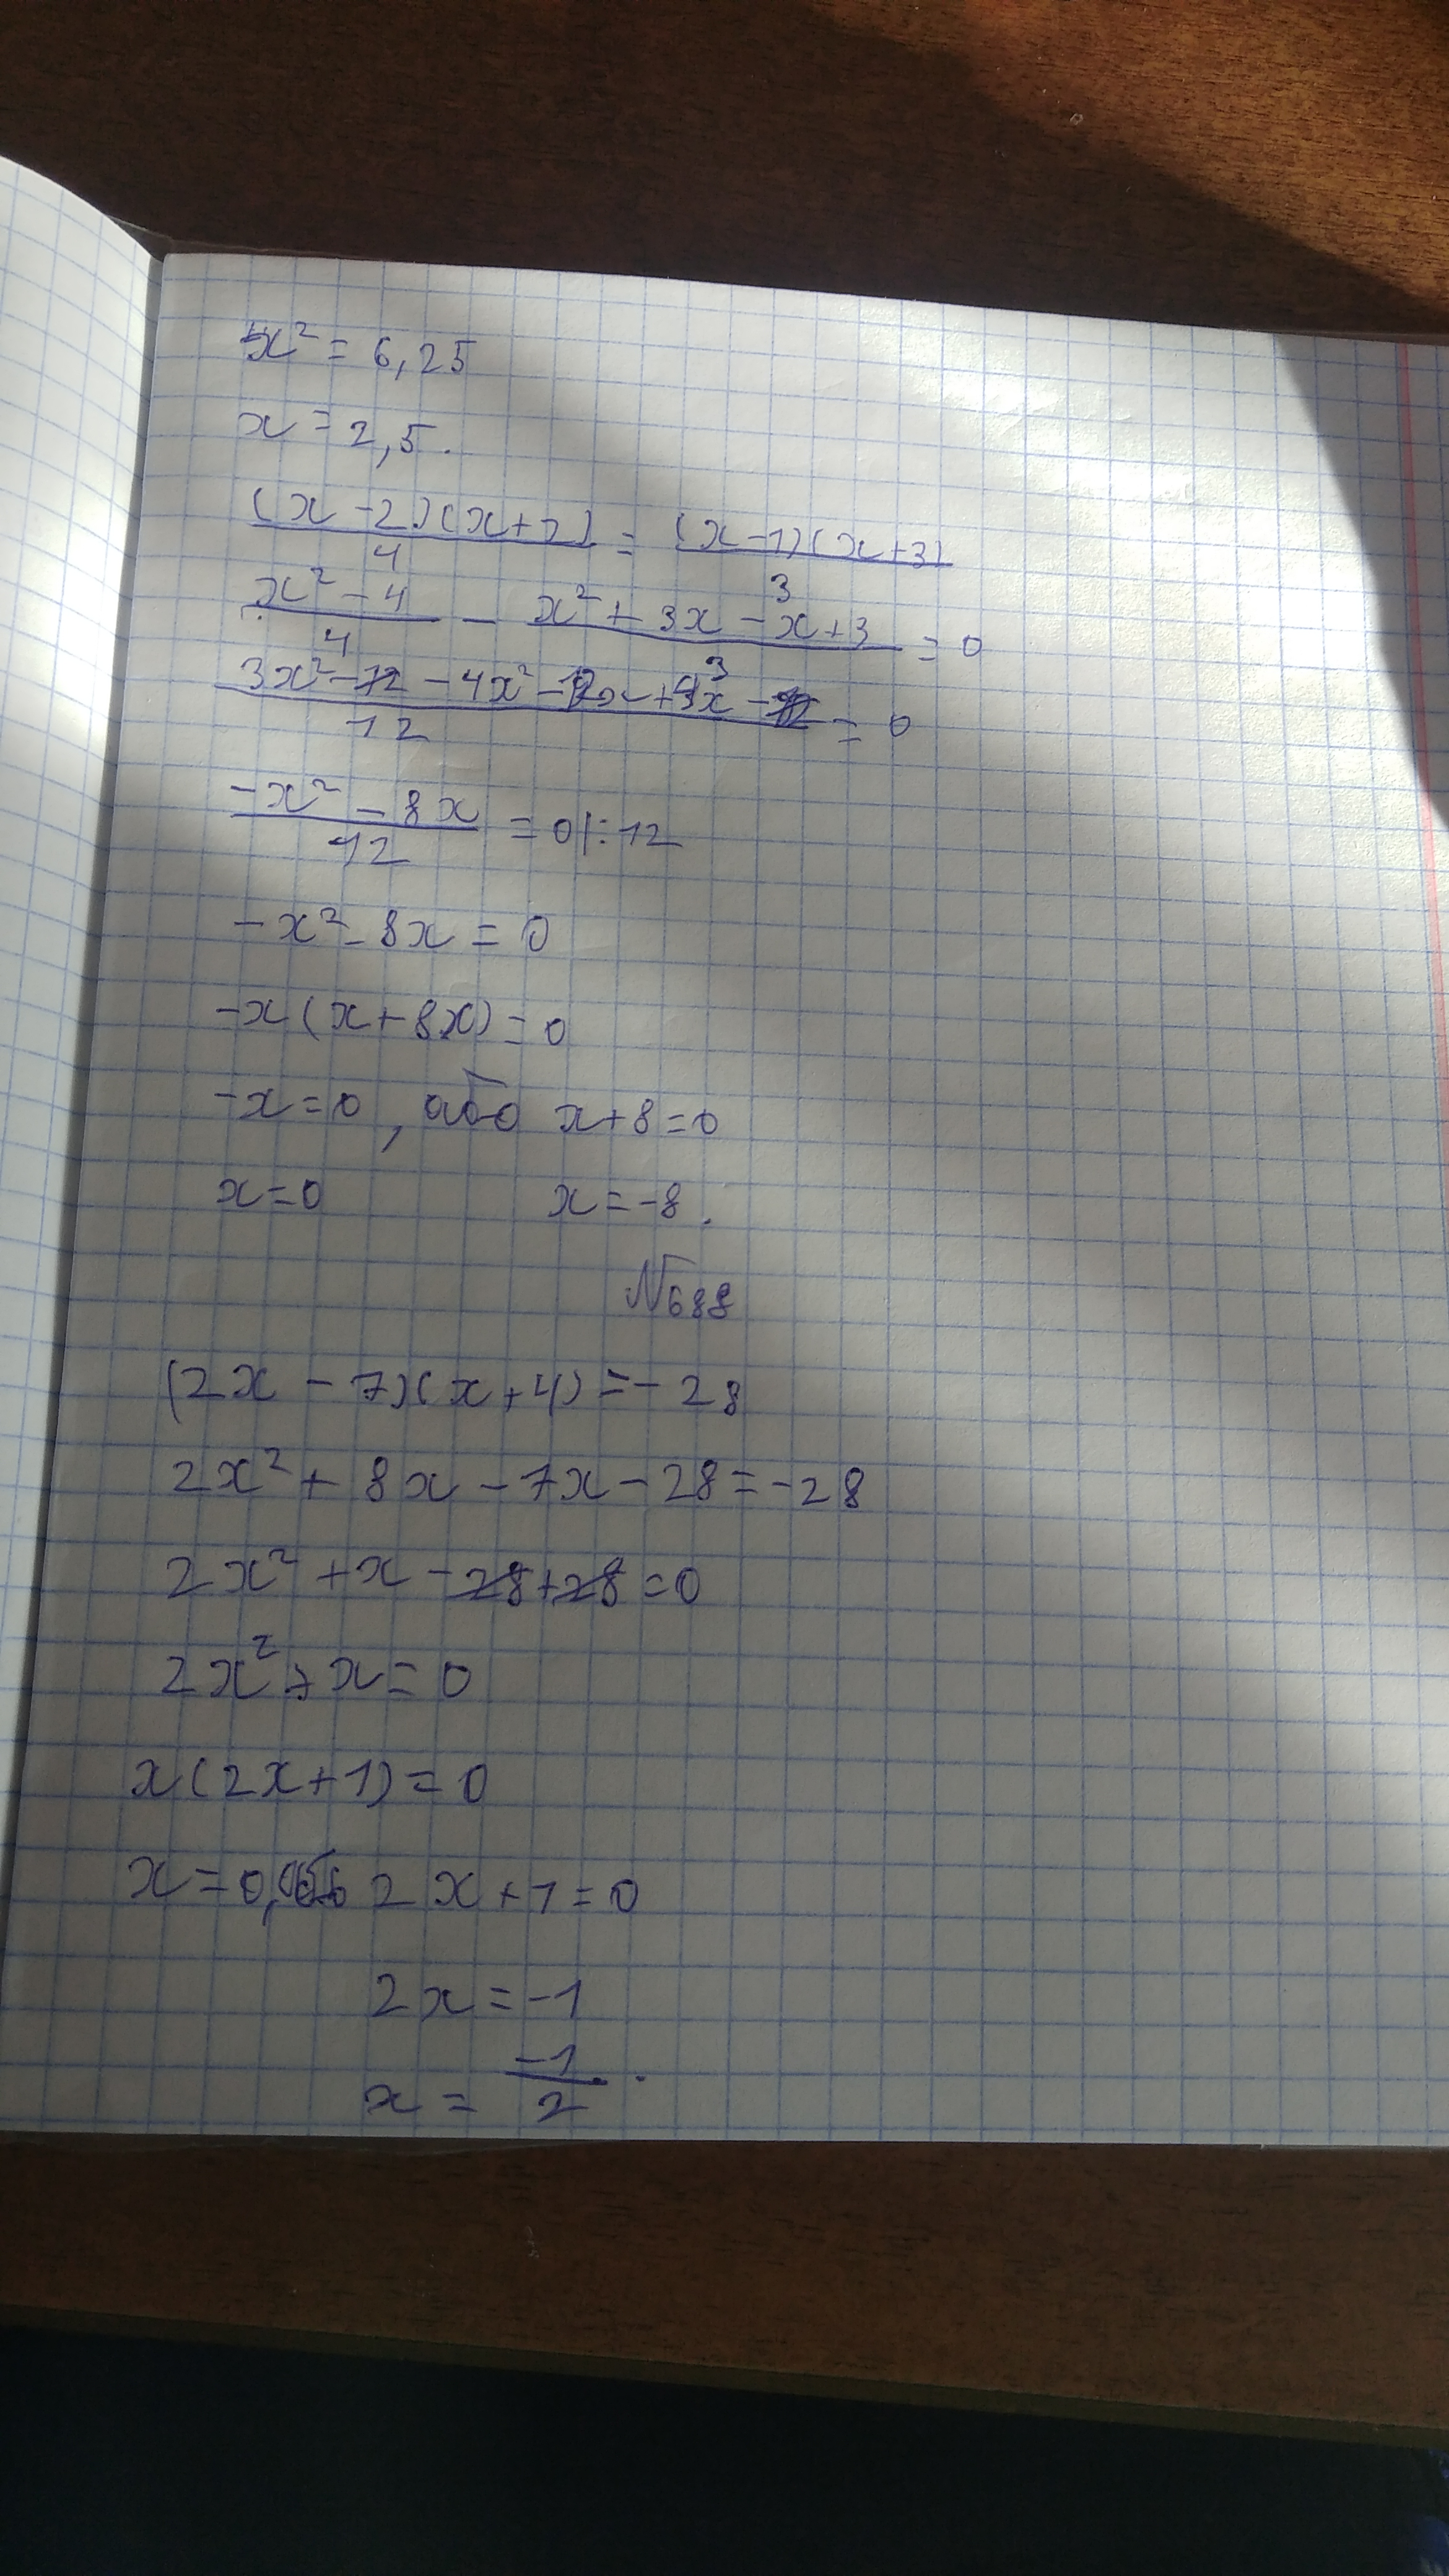 x² = 6,25
x = 2,5.
(x - 2)(x + 2)/4 = (x - 1)(x + 3)/3
x² - 4/4 - x² + 3x - x + 3/3 = 0
3x² - 12 - 4x² - 12x + 4x - /12 = 0
-x² - 8x/12 = 0 |: 12
-x² - 8x = 0
-x(x + 8x) = 0
-x = 0, або x + 8 = 0
x = 0 x = -8.
№688
(2x - 7)(x + 4) = -28
2x² + 8x - 7x - 28 = -28
2x² + x - 28 + 28 = 0
2x² + x = 0
x(2x + 1) = 0
x = 0, або 2x + 1 = 0
2x = -1
x = -1/2.